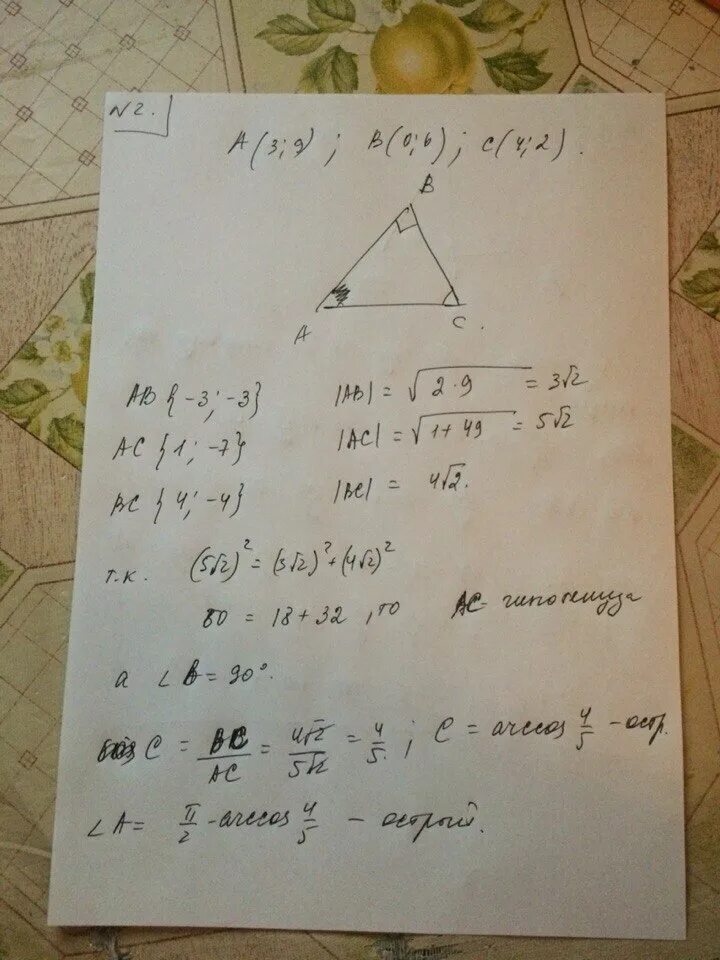 N2.
A(3;9); B(0;6); C(4;2).
B
A
C.
AB{-3;-3} |AB| = √2·9 = 3√2
AC{1;-7} |AC| = √1+49 = 5√2
BC{4;-4} |BC| = 4√2.
т.к. (5√2)² = (3√2)² + (4√2)²
50 = 18+32, то AC- гипотенуза
а ∠B = 90°.
cos C = BC/AC = 4√2/5√2 = 4/5; C = arccos 4/5 - остр.
∠A = π/2 - arccos 4/5 - острый.